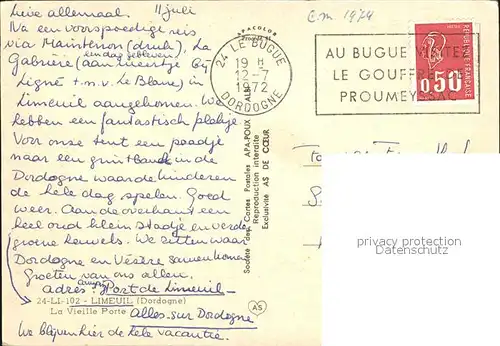 Lieve allemaal. 11 juli
Na een voorspoedige reis
via Maintenon (druk), La
een dag gebleven
Gabrière (aan meertje bij
Ligné t.n.v. Le Blanc) in
Limeuil aangekomen. We
hebben een fantastisch plekje.
Voor onze tent een paadje
naar een grintbank in de
Dordogne waar de kinderen
de hele dag spelen. Goed
weer. Aan de overkant een
heel oud klein stadje en verder
groene heuvels. We zitten waar
Dordogne en Vézère samenkomen
Groeten van ons allen.
adres: Camping Port de Limeuil
24-LI-102 - LIMEUIL (Dordogne)
La Vieille Porte
Alles-sur-Dordogne
We blijven hier de hele vacantie.
APACOLOR
24 LE BUGUE
19 H
12-7
1972
DORDOGNE
Société des Cartes Postales APA-POUX - ALBI
Reproduction interdite
Exclusivité AS DE CŒUR
AS
1974
AU BUGUE VISITEZ
LE GOUFFRE
PROUMEYSSAC
0,50
RÉPUBLIQUE FRANÇAISE
privacy protection
Datenschutz